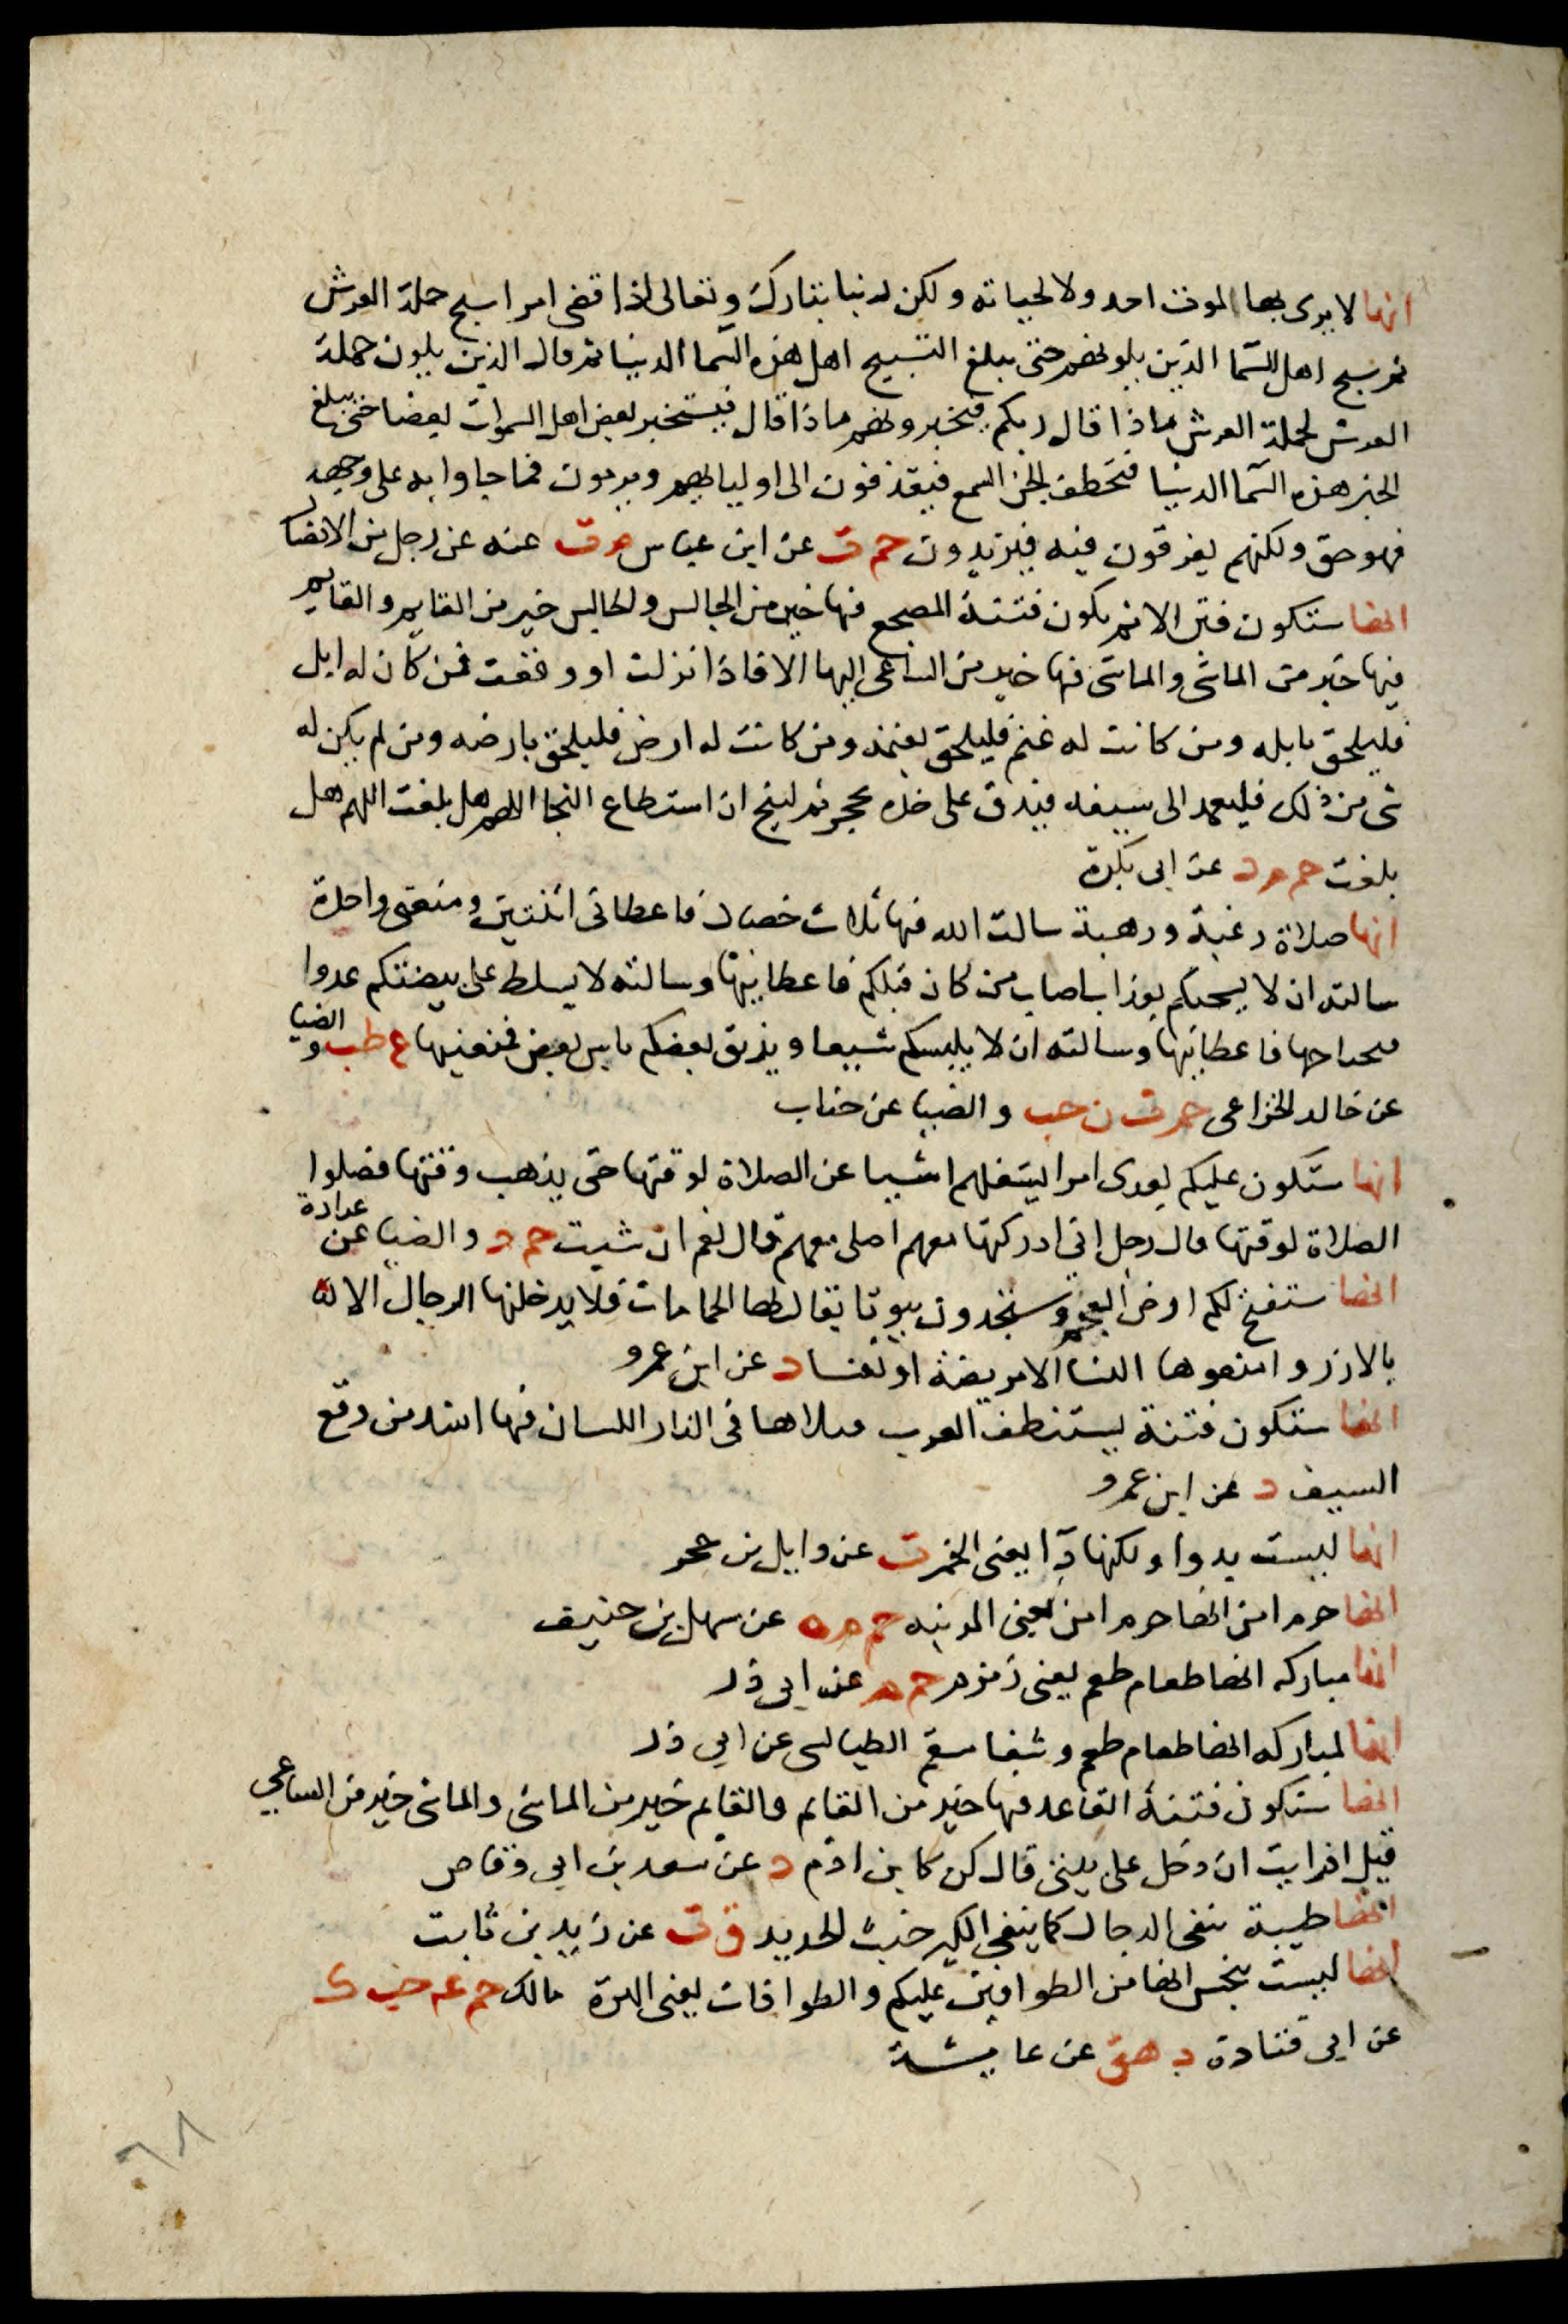 انها لا يرمى بها لموت احد ولا لحياته ولكن ربنا تبارك وتعالى اذا قضى امرا سبح حملة العرش
ثم سبح اهل السما الذين يلونهم حتى يبلغ التسبيح اهل هذه السما الدنيا ثم قال الذين يلون حملة
العرش لحملة العرش ماذا قال ربكم فيخبرونهم ماذا قال فيستخبر بعض اهل السموات بعضا حتى يبلغ
الخبر هذه السما الدنيا فتخطف الجن السمع فيقذفون الى اوليايهم ويرمون فما جاوا به على وجهه
فهو حق ولكنهم يفرقون فيه فيزيدون حم ت عن ابن عباس م ت عنه عن رجل من الانصار
انها ستكون فتن الا ثم تكون فتنة المضجع فيها خير من الجالس والجالس خير من القايم والقايم
فيها خير من الماشى والماشى فيها خير من الساعى اليها الا فاذا نزلت او وقعت فمن كان له ابل
فليلحق بابله ومن كانت له غنم فليلحق بغنمه ومن كانت له ارض فليلحق بارضه ومن لم يكن له
شى من ذلك فليعمد الى سيفه فيدق على حده بحجر ثم لينج ان استطاع النجا اللهم هل بلغت اللهم هل
بلغت حم م د عن ابى بكرة
انها صلاة رغبة ورهبة سالت الله فيها ثلاث خصال فاعطانى اثنتين ومنعنى واحدة
سالته ان لا يسحتكم بعذاب اصاب من كان قبلكم فاعطانيها وسالته لا يسلط على بيضتكم عدوا
فيجتاحها فاعطانيها وسالته ان لا يلبسكم شيعا ويذيق بعضكم باس بعض فمنعنيها ع طب والضيا
عن خالد الخزاعى حم ت ن حب والضيا عن خباب
انها ستكون عليكم بعدى امرا يشغلهم اشيا عن الصلاة لوقتها حتى يذهب وقتها فصلوا
الصلاة لوقتها قال رجل انى ادركتها معهم اصلى معهم قال نعم ان شيت حم د والضيا عن عبادة
انها ستفتح لكم ارض العجم وستجدون بيوتا يقال لها الحمامات فلا يدخلنها الرجال الا
بالازر وامنعوها النسا الا مريضة او نفسا د عن ابن عمرو
انها ستكون فتنة تستنظف العرب قتلاها فى النار اللسان فيها اشد من وقع
السيف د عن ابن عمرو
انها ليست بدوا ولكنها دآ يعنى الخمر ت عن وايل بن حجر
انها حرم امن انها حرم امن يعنى المدينه حم م ه عن سهل بن حنيف
انها مباركه انها طعام طعم يعنى زمزم حم م عن ابى ذر
انها لمباركه انها طعام طعم وشفا سقم الطيالسى عن ابى ذر
انها ستكون فتنة القاعد فيها خير من القايم والقايم خير من الماشى والماشى خير من الساعي
قيل افرايت ان دخل على بيتى قال كن كابن ادم د عن سعد بن ابى وقاص
انها طيبة تنفى الرجال كما ينفى الكير خبث الحديد ق ت عن زيد بن ثابت
انها ليست بنجس انها من الطوافين عليكم والطوافات يعنى الهرة مالك حم عه حب ك
عن ابى قتادة د هق عن عايشة
٦٨